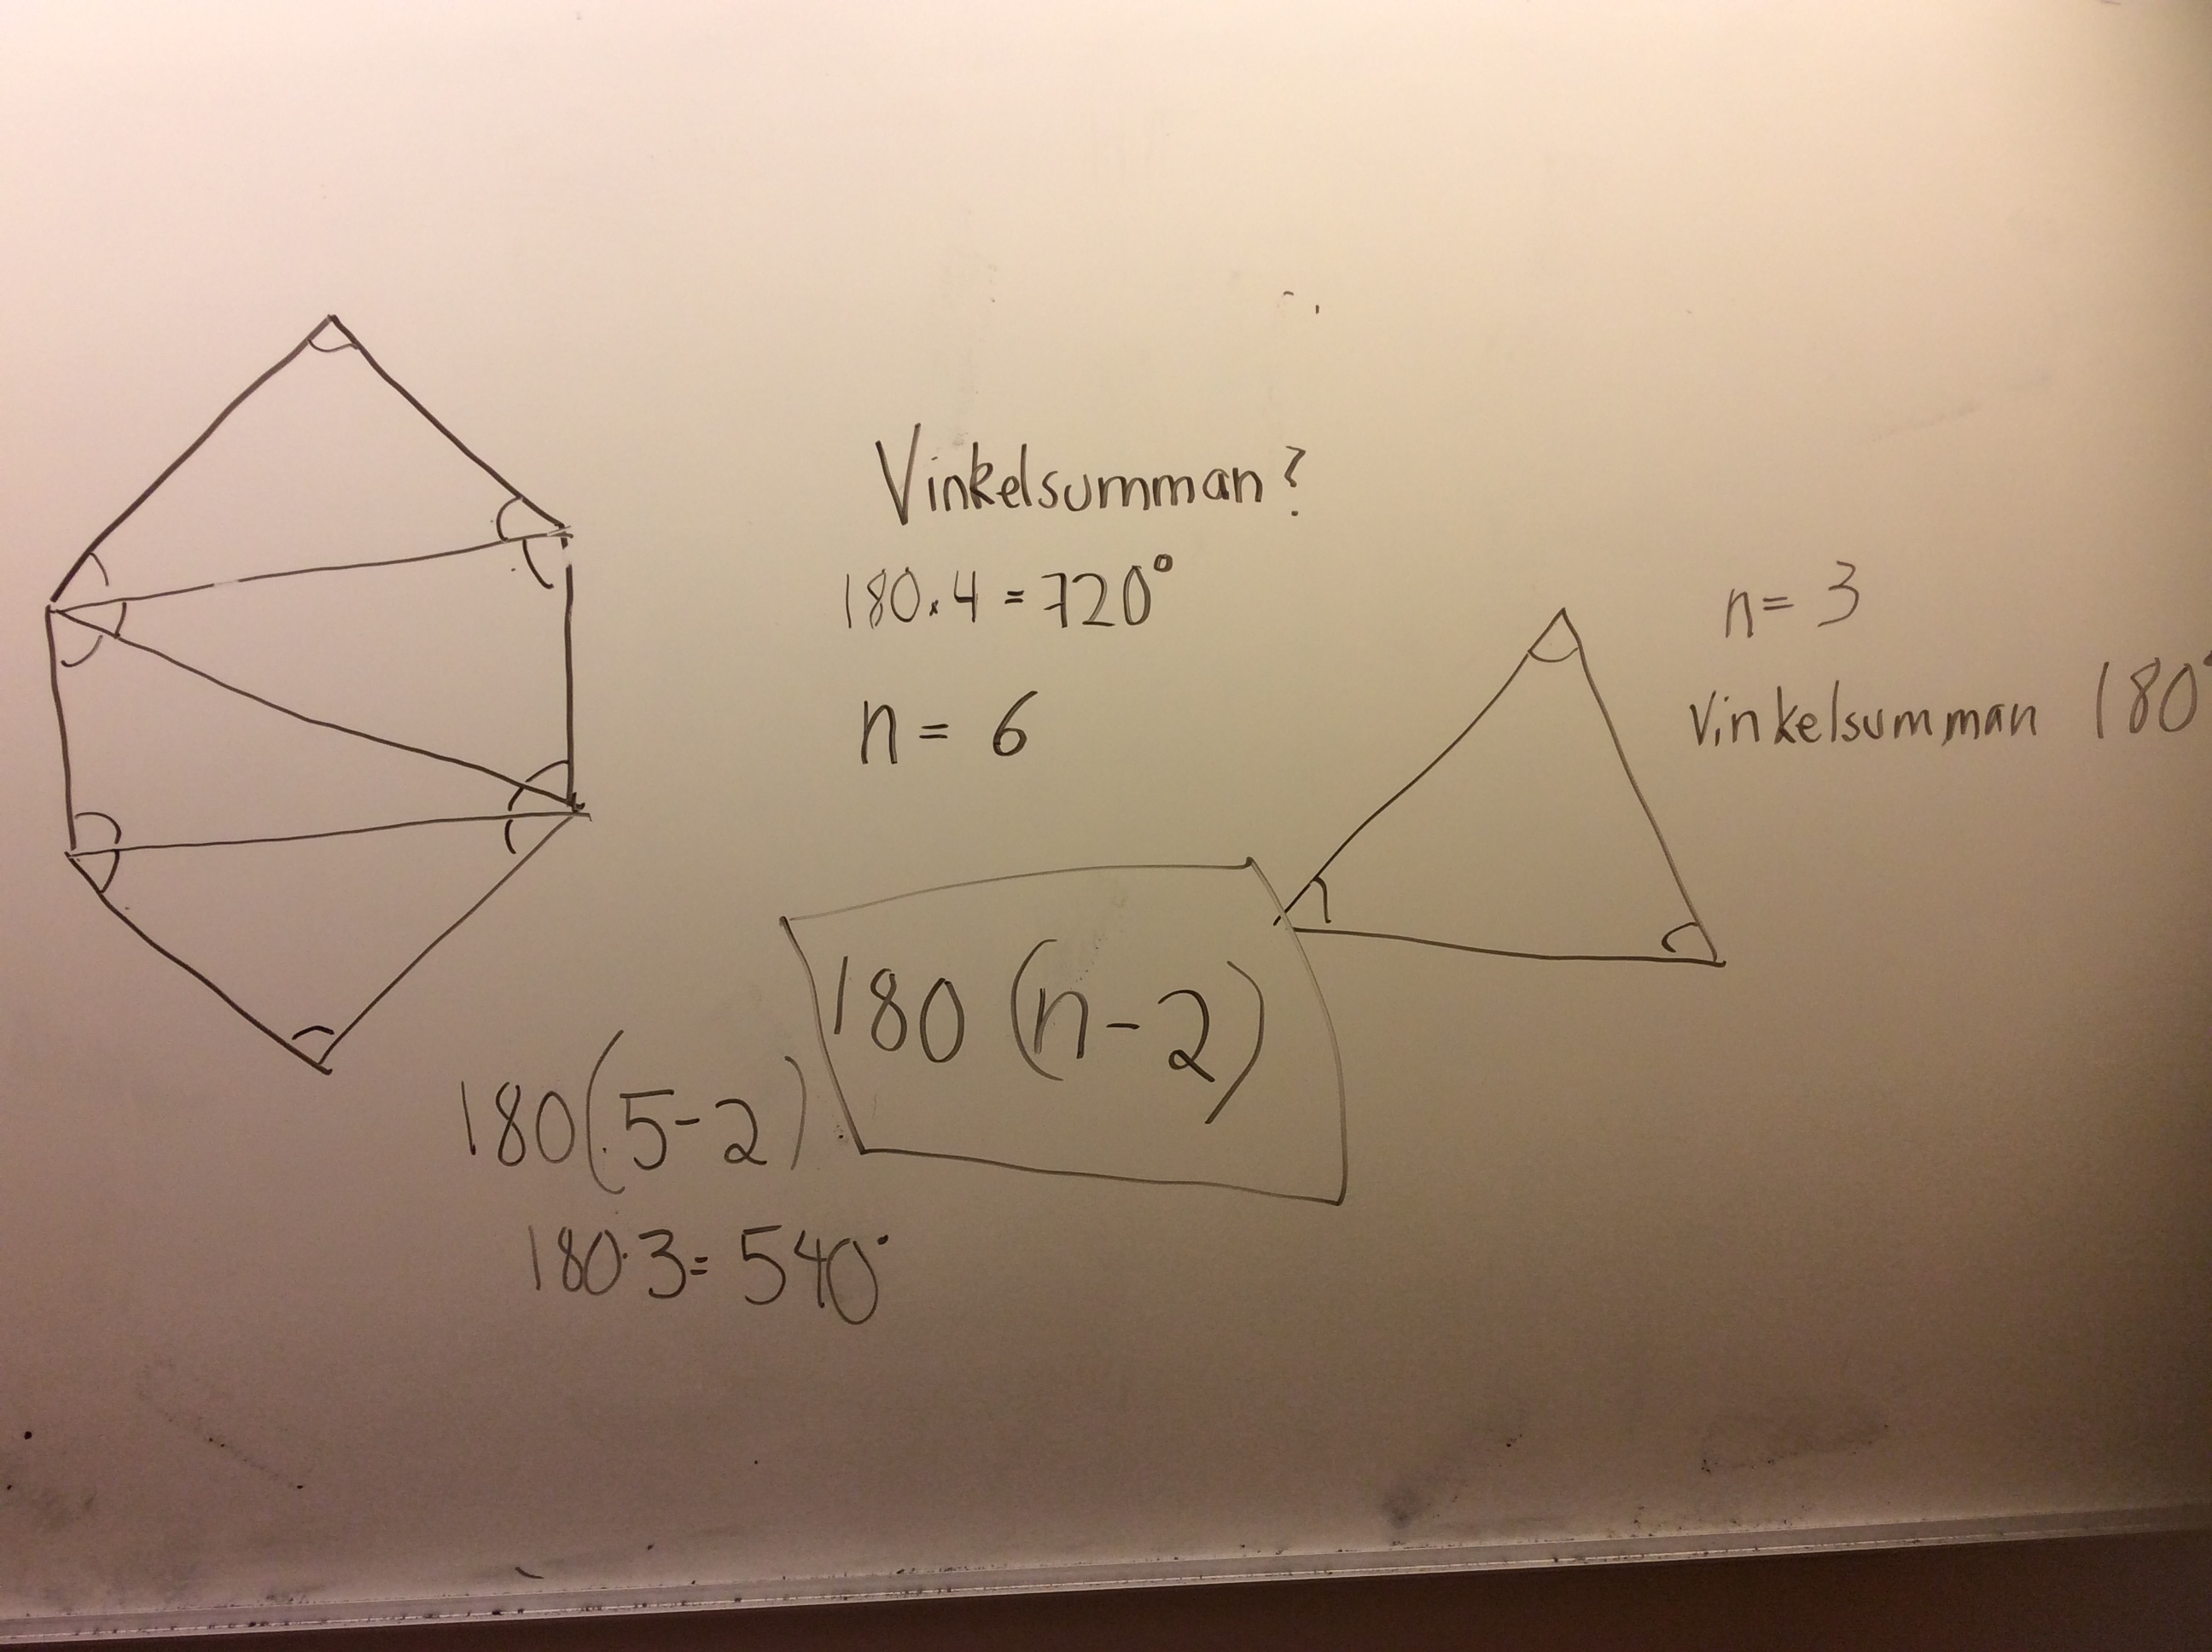 Vinkelsumman?
180·4=720°
n=6
n=3
Vinkelsumman 180°
180(n-2)
180(5-2)
180·3=540°